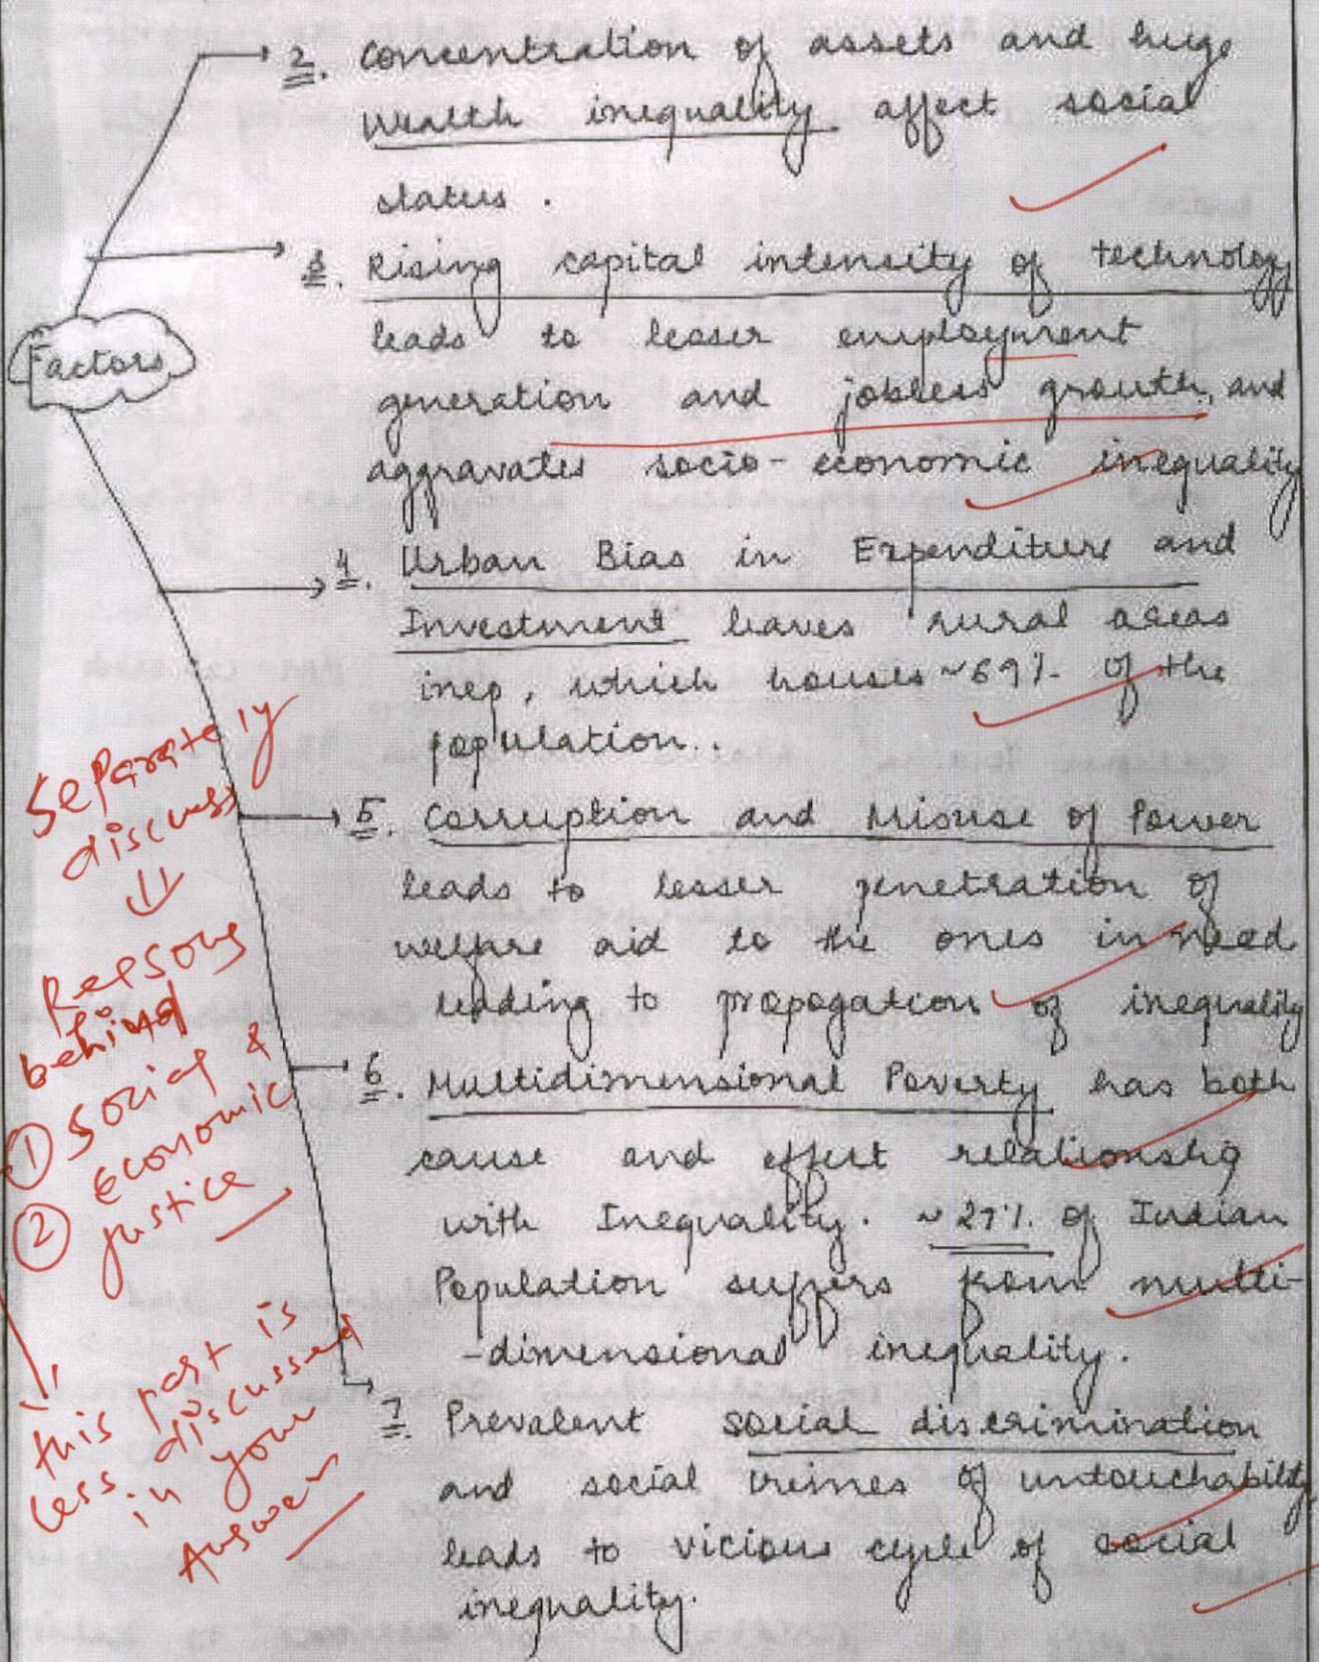 2. Concentration of assets and huge
Wealth inequality affect social
status.
3. Rising capital intensity of technology
leads to lesser employment
generation and jobless growth, and
aggravates socio-economic inequality
Factors
4. Urban Bias in Expenditure and
Investment leaves rural areas
inep, which houses ~69% of the
population..
5. Corruption and Misuse of Power
leads to lesser penetration of
welfare aid to the ones in need
leading to propogation of inequality
6. Multidimensional Poverty has both
cause and effect relationship
with Inequality. ~27% of Indian
Population suffers from multi-
-dimensional inequality.
7. Prevalent social discrimination
and social crimes of untouchability,
leads to vicious cycle of social
inequality.
Separately
discuss
Reasons
behind
① Social &
② economic
justice
this part is
less discussed
in your
Answer